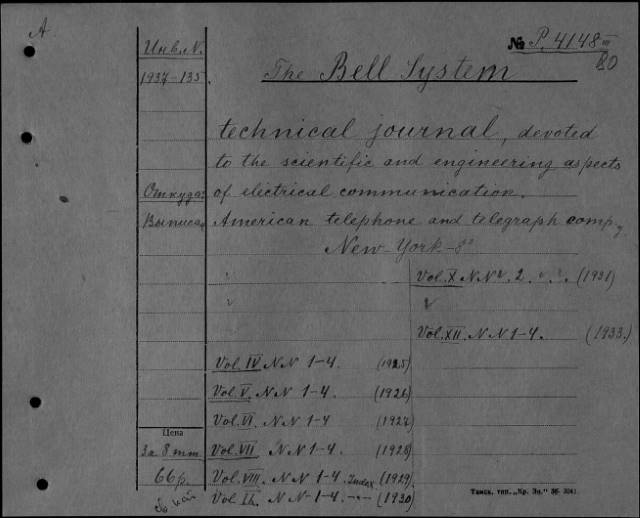 A
Инв. N.
№ P. 4148 III
80
1937-135.
The Bell System
technical journal, devoted
to the scientific and engineering aspects
Откуда: of electrical communication.
Выписан American telephone and telegraph comp.
New-York-8°
" Vol. X NN 2. (1931)
" "
Vol. XII. NN 1-4. (1933.)
Vol. IV NN 1-4. (1925)
Vol. V. NN 1-4. (1926)
Vol. VI. NN 1-4 (1927)
Цена
за 8 тт Vol. VII NN 1-4. (1928)
66 р. Vol. VIII. NN 1-4. Index (1929)
Vol. IX. NN 1-4. -"- (1930)
Тамск. тип. „Кр. Зн."